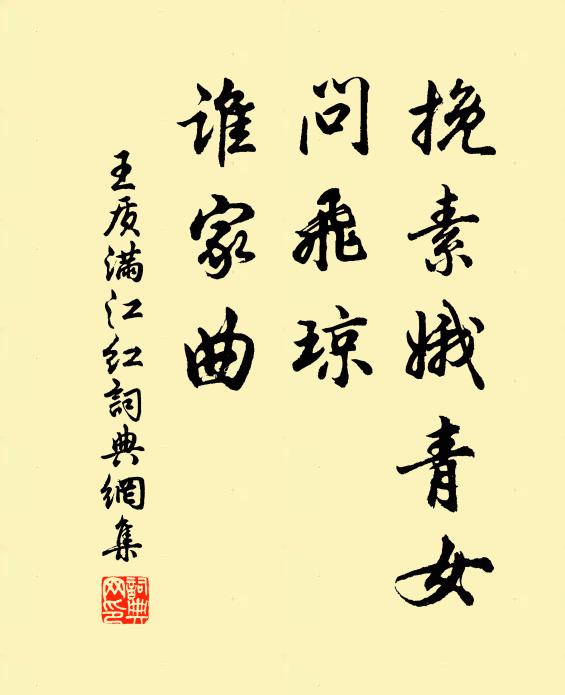 挽素娥青女
问飛琼
谁家曲
王质满江红詞典網集
詞典网印